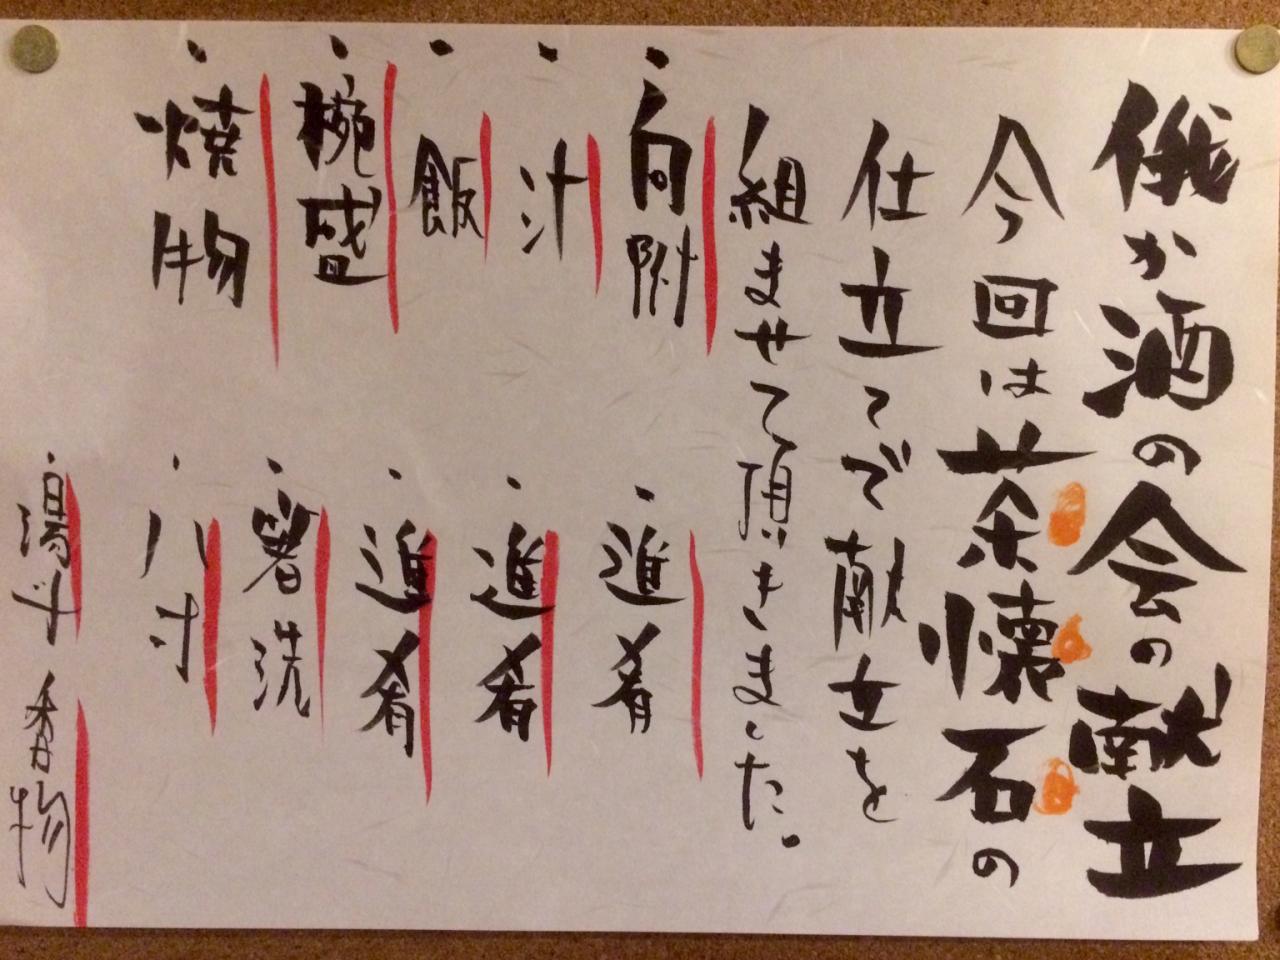 俄か酒の会の献立
今回は茶懐石の
仕立てで献立を
組ませて頂きました。
・向附
・汁
・飯
・椀盛
・焼物
・進肴
・進肴
・進肴
・箸洗
・八寸
・湯斗 香物